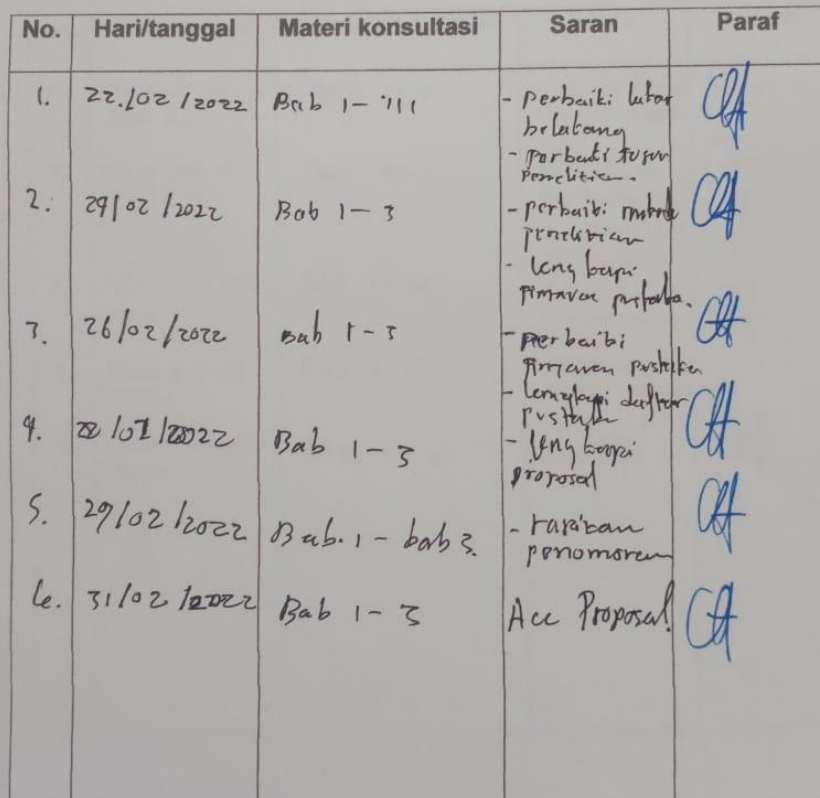 No. Hari/tanggal Materi konsultasi Saran Paraf
1. 22/02/2022 Bab 1-III - perbaiki latar
belakang
- perbaiki tujuan
penelitian.
2. 24/02/2022 Bab 1-3 - perbaiki metode
penelitian
- lengkapi
tinjauan pustaka.
3. 26/02/2022 Bab 1-3 - perbaiki
tinjauan pustaka
- lengkapi daftar
pustaka
4. /2022 Bab 1-3 - lengkapi
proposal
5. 29/02/2022 Bab. 1 - bab 3. - rapikan
penomoran
6. 31/02/2022 Bab 1-3 Acc Proposal!